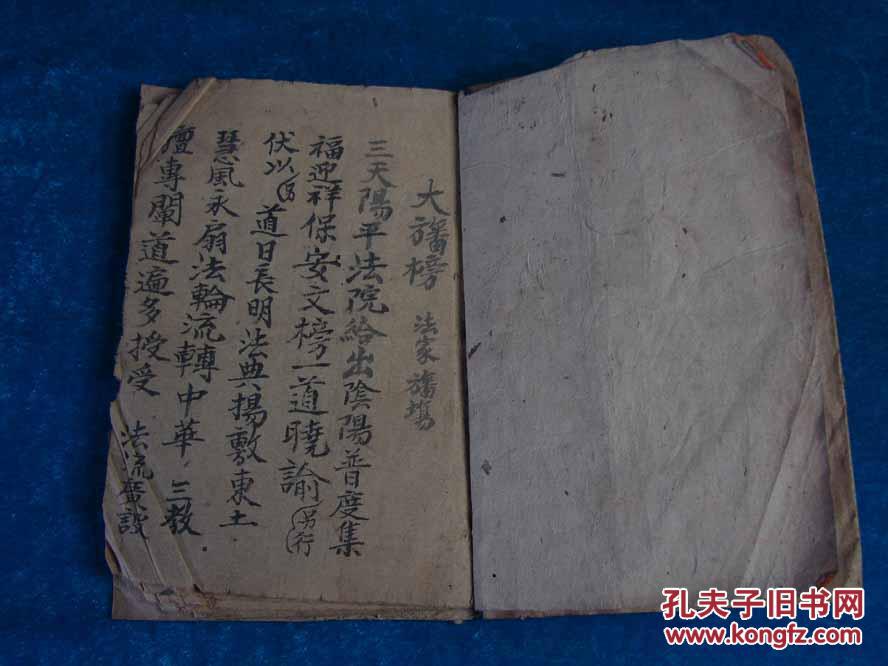 大旛榜 法家旛塲
三天陽平法院給出陰陽普度集
福迎祥保安文榜一道曉諭 另行
伏以 另 道日長明法典揚敷東土
慧風永扇法輪流轉中華 三教
壇專闡道遍多授受 法流廣設
孔夫子旧书网
www.kongfz.com